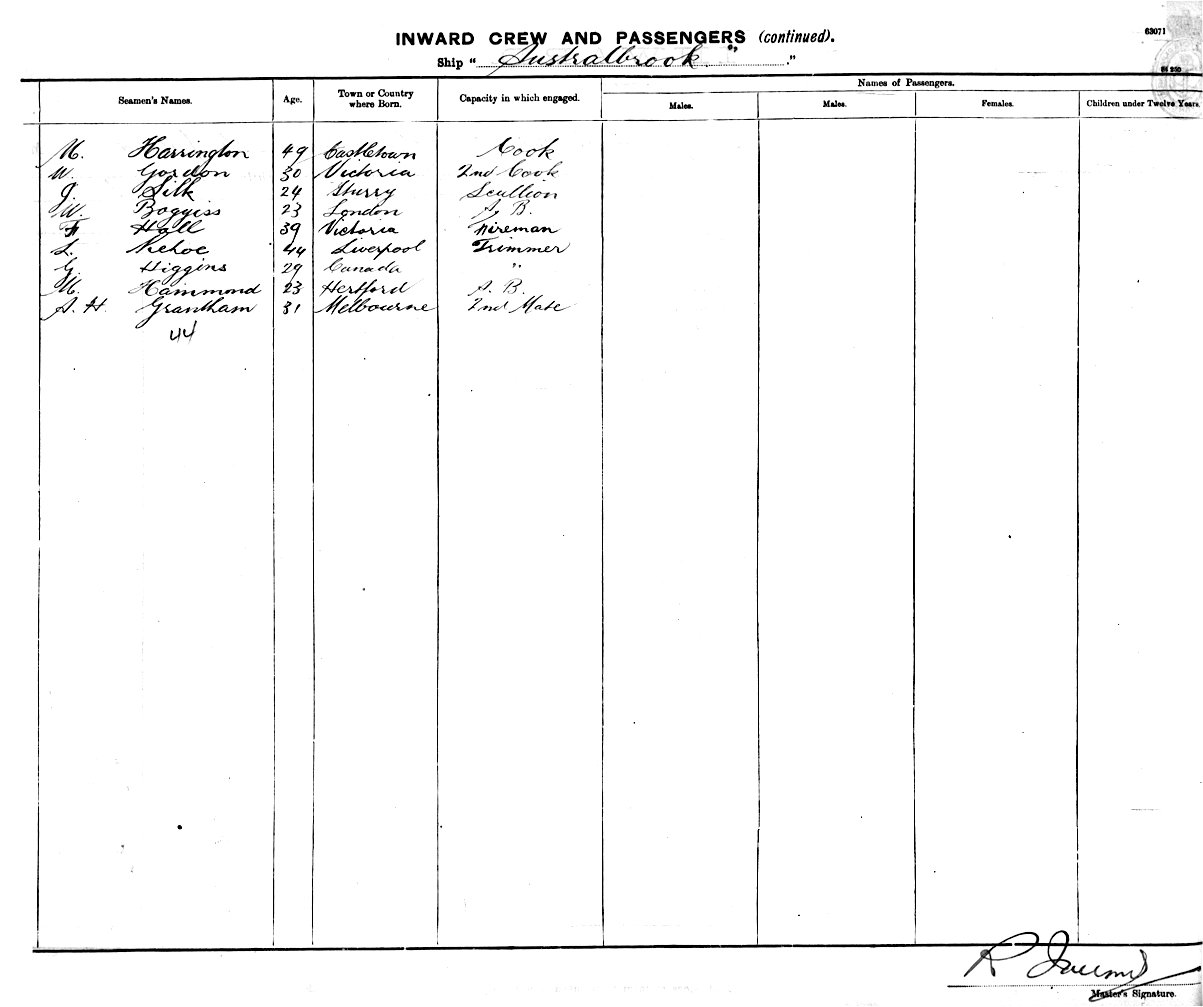 63071
INWARD CREW AND PASSENGERS (continued).
Ship " Australbrook " "
Seamen's Names. Age. Town or Country where Born. Capacity in which engaged. Names of Passengers.
Males. Males. Females. Children under Twelve Years.
M. Harrington 49 Castletown Cook
W. Gordon 30 Victoria 2nd Cook
J. Silk 24 Sturry Scullion
W. Boggiss 23 London A. B.
F Hall 39 Victoria Fireman
L. Kehoe 44 Liverpool Trimmer
G. Higgins 29 Canada "
M. Hammond 23 Hertford A. B.
A. H. Grantham 31 Melbourne 2nd Mate
44
R
Master's Signature.